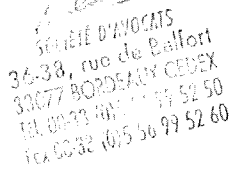 SOCIÉTÉ D'AVOCATS
36-38, rue de Belfort
33077 BORDEAUX CEDEX
TEL 00-33 52 50
FAX 00-32 (0)5 56 99 52 60